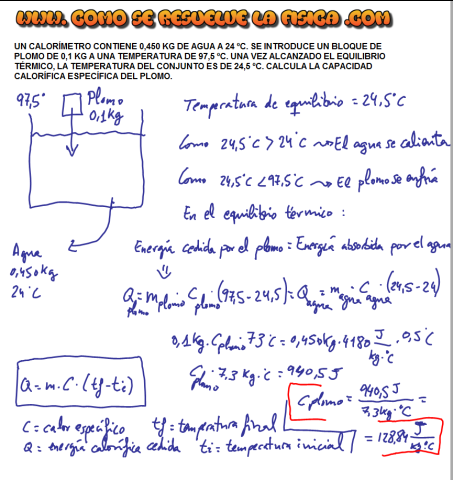 WWW. COMO SE RESUELVE LA FISICA .COM
UN CALORÍMETRO CONTIENE 0,450 KG DE AGUA A 24 ºC. SE INTRODUCE UN BLOQUE DE
PLOMO DE 0,1 KG A UNA TEMPERATURA DE 97,5 ºC. UNA VEZ ALCANZADO EL EQUILIBRIO
TÉRMICO, LA TEMPERATURA DEL CONJUNTO ES DE 24,5 ºC. CALCULA LA CAPACIDAD
CALORÍFICA ESPECÍFICA DEL PLOMO.
97,5° Plomo
0,1kg
Temperatura de equilibrio = 24,5°C
Como 24,5°C > 24°C ⇝ El agua se calienta
Como 24,5°C < 97,5°C ⇝ El plomo se enfría
En el equilibrio térmico :
Agua
0,450kg
24°C
Energía cedida por el plomo = Energía absorbida por el agua
⇓
Q plomo = m plomo · C plomo · (97,5 - 24,5) = Q agua = m agua · C agua · (24,5 - 24)
0,1 kg · C plomo · 73°C = 0,450kg · 4180 J/kg·°C · 0,5°C
C plomo · 7,3 kg·°C = 940,5 J
Q = m · C · (tf - ti)
C plomo = 940,5 J / 7,3 kg·°C =
= 128,84 J/kg·°C
C = calor específico tf = temperatura final
Q = energía calorífica cedida ti = temperatura inicial